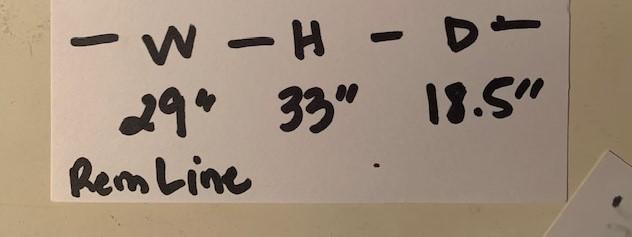 - W - H - D -
29" 33" 18.5"
Rem Line